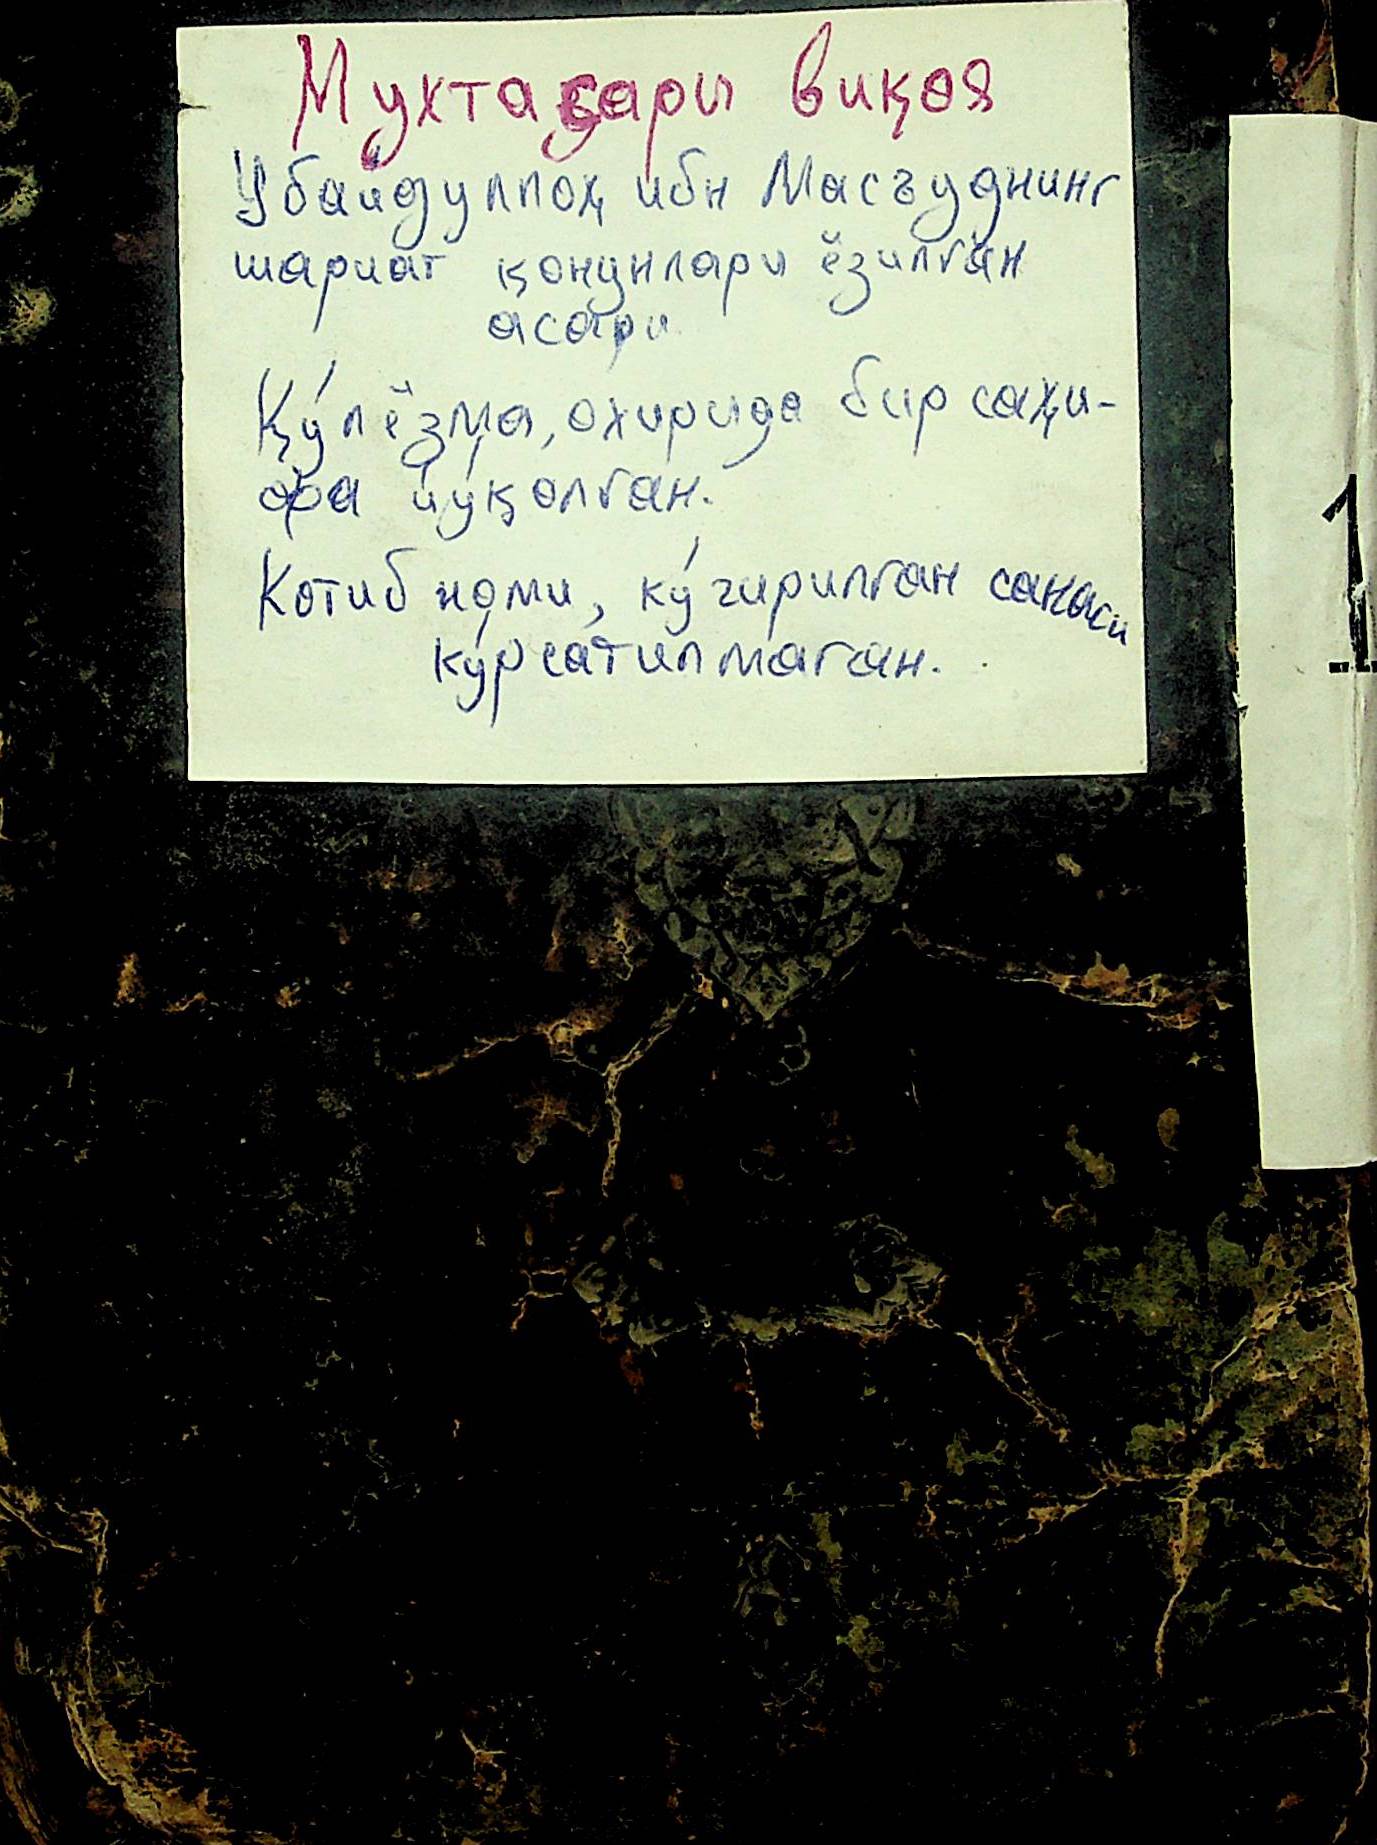 Мухтасари виқоя
Убайдуллоҳ ибн Масъуднинг
шариат қонунлари ёзилган
асари.
Қўлёзма, охирида бир саҳи-
фа йўқолган.
Котиб номи, кўчирилган санаси
кўрсатилмаган.
1